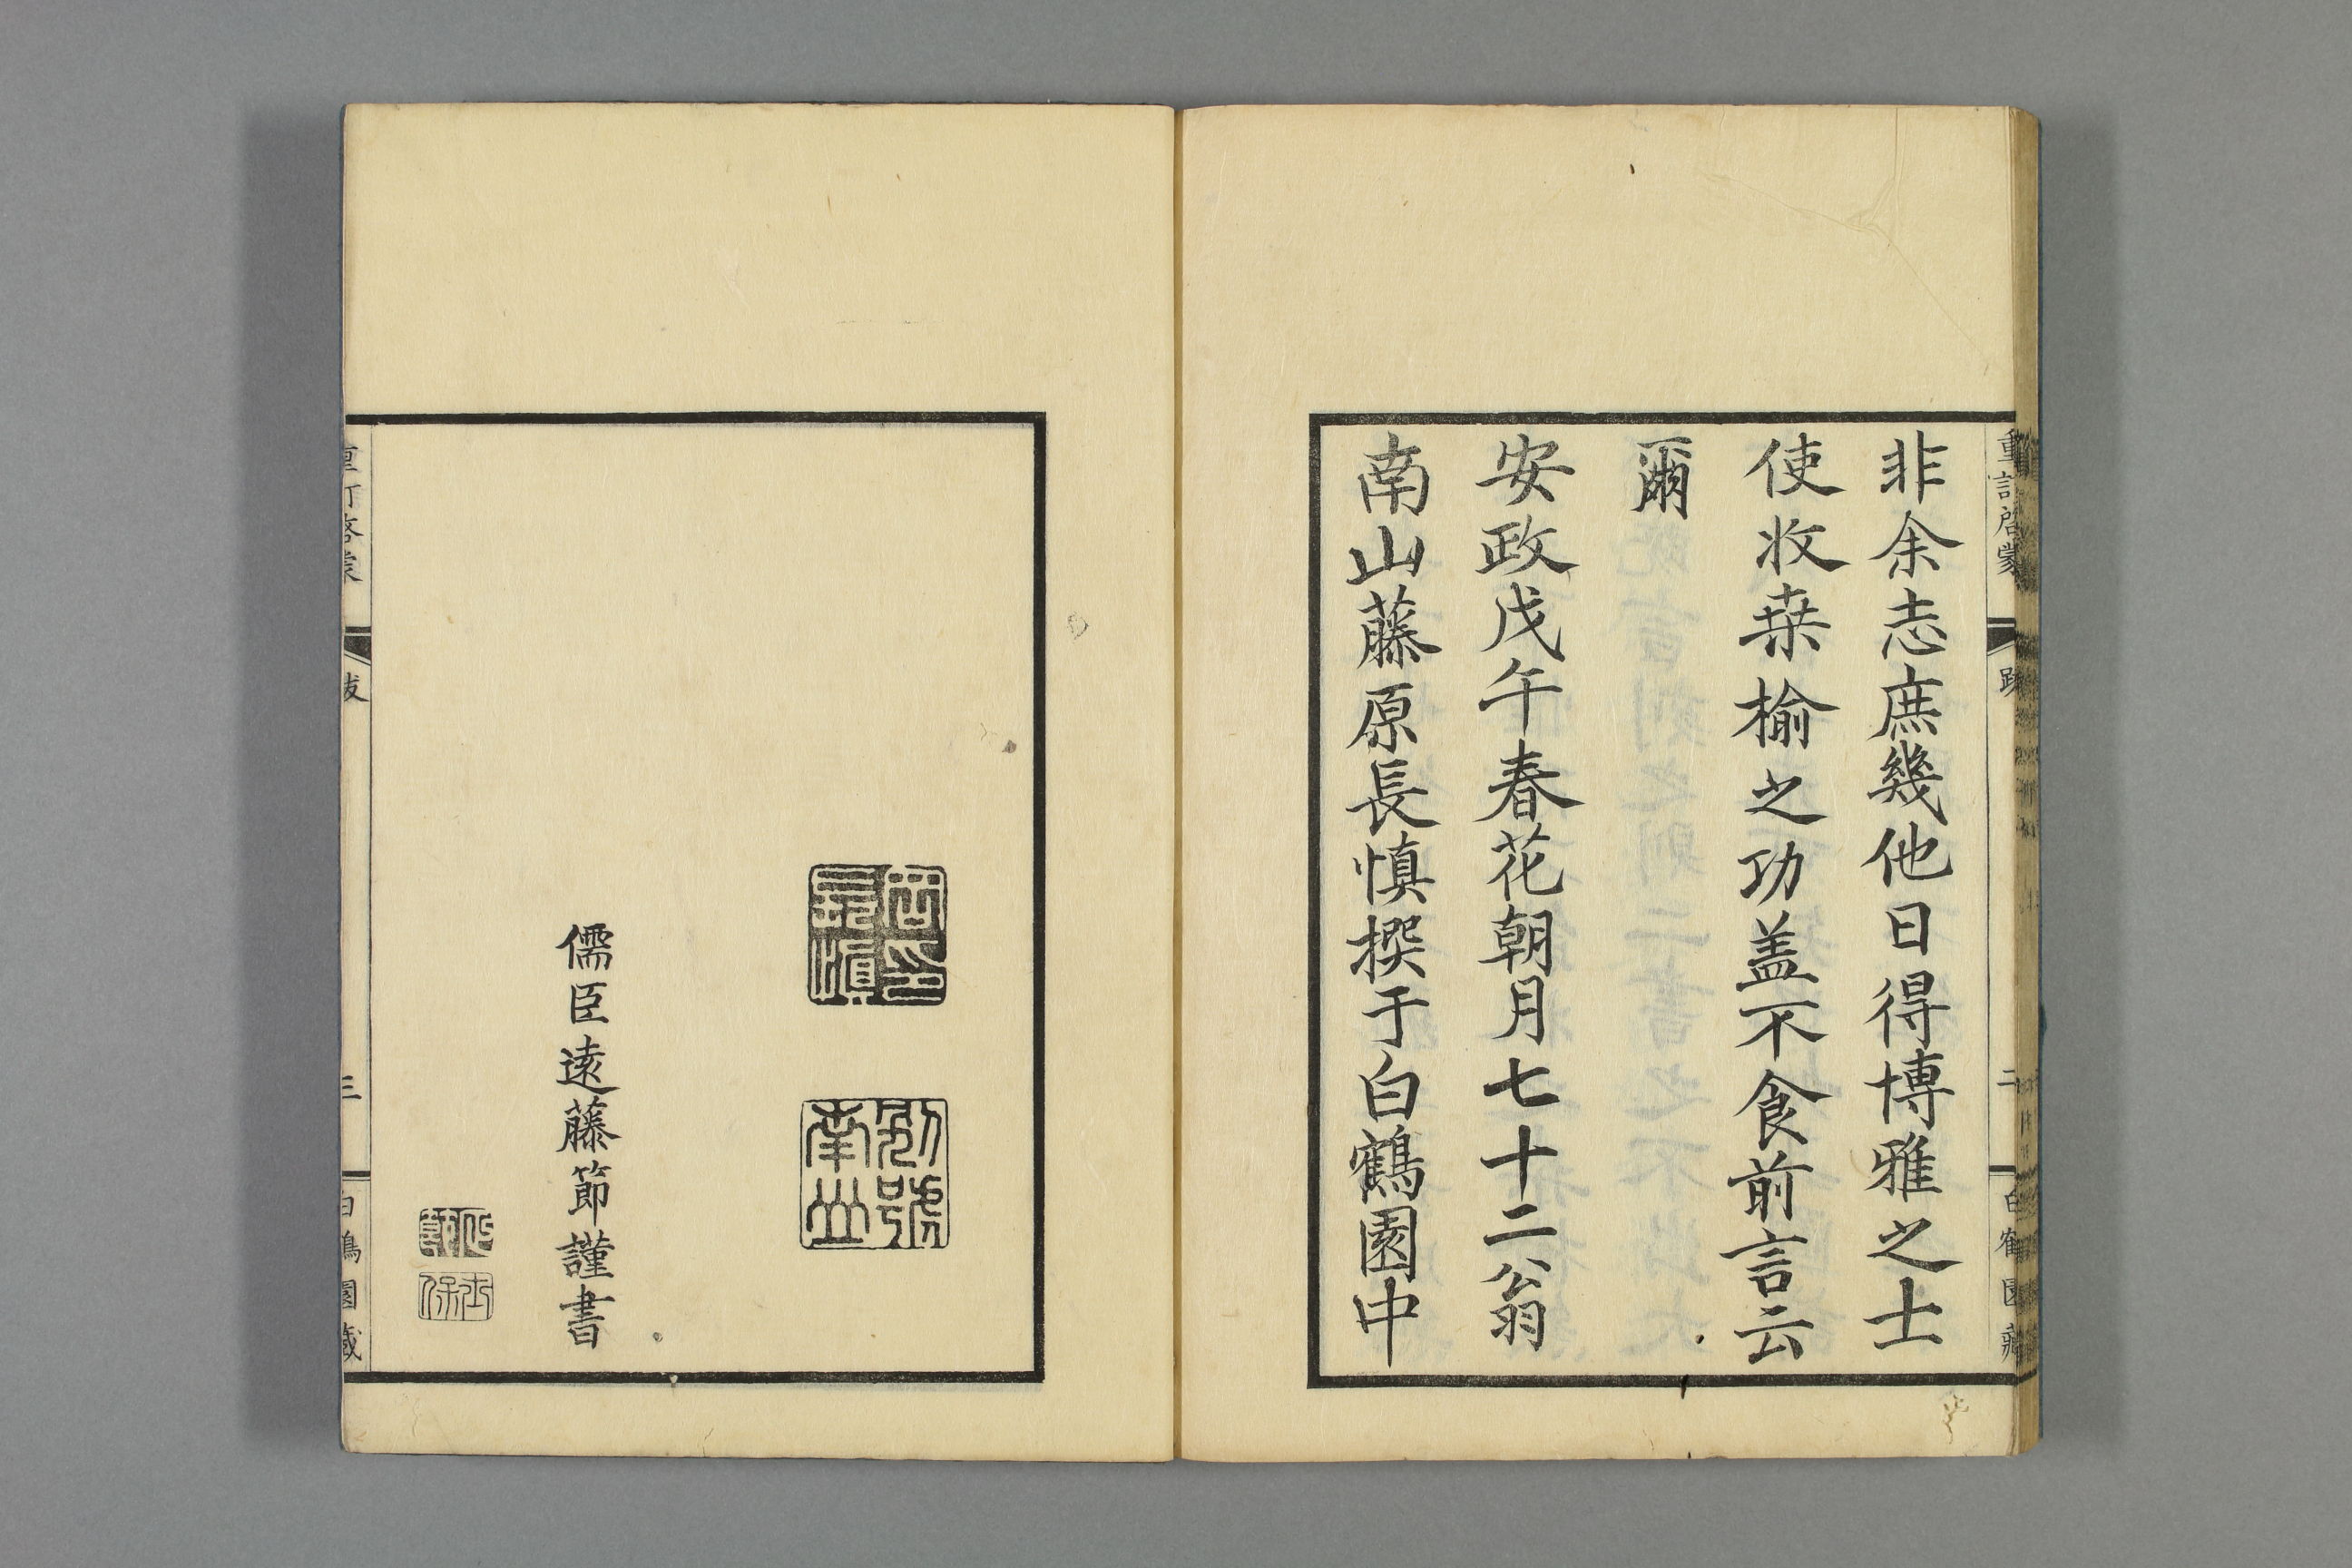 非余志庶幾他日得博雅之士
使收桒榆之功盖不食前言云
爾
安政戊午春花朝月七十二翁
南山藤原長慎撰于白鶴園中
重訂啓蒙
跋
二
白鶴園藏
別號南山
儒臣遠藤節謹書
重訂啓蒙
跋
三
白鶴園藏